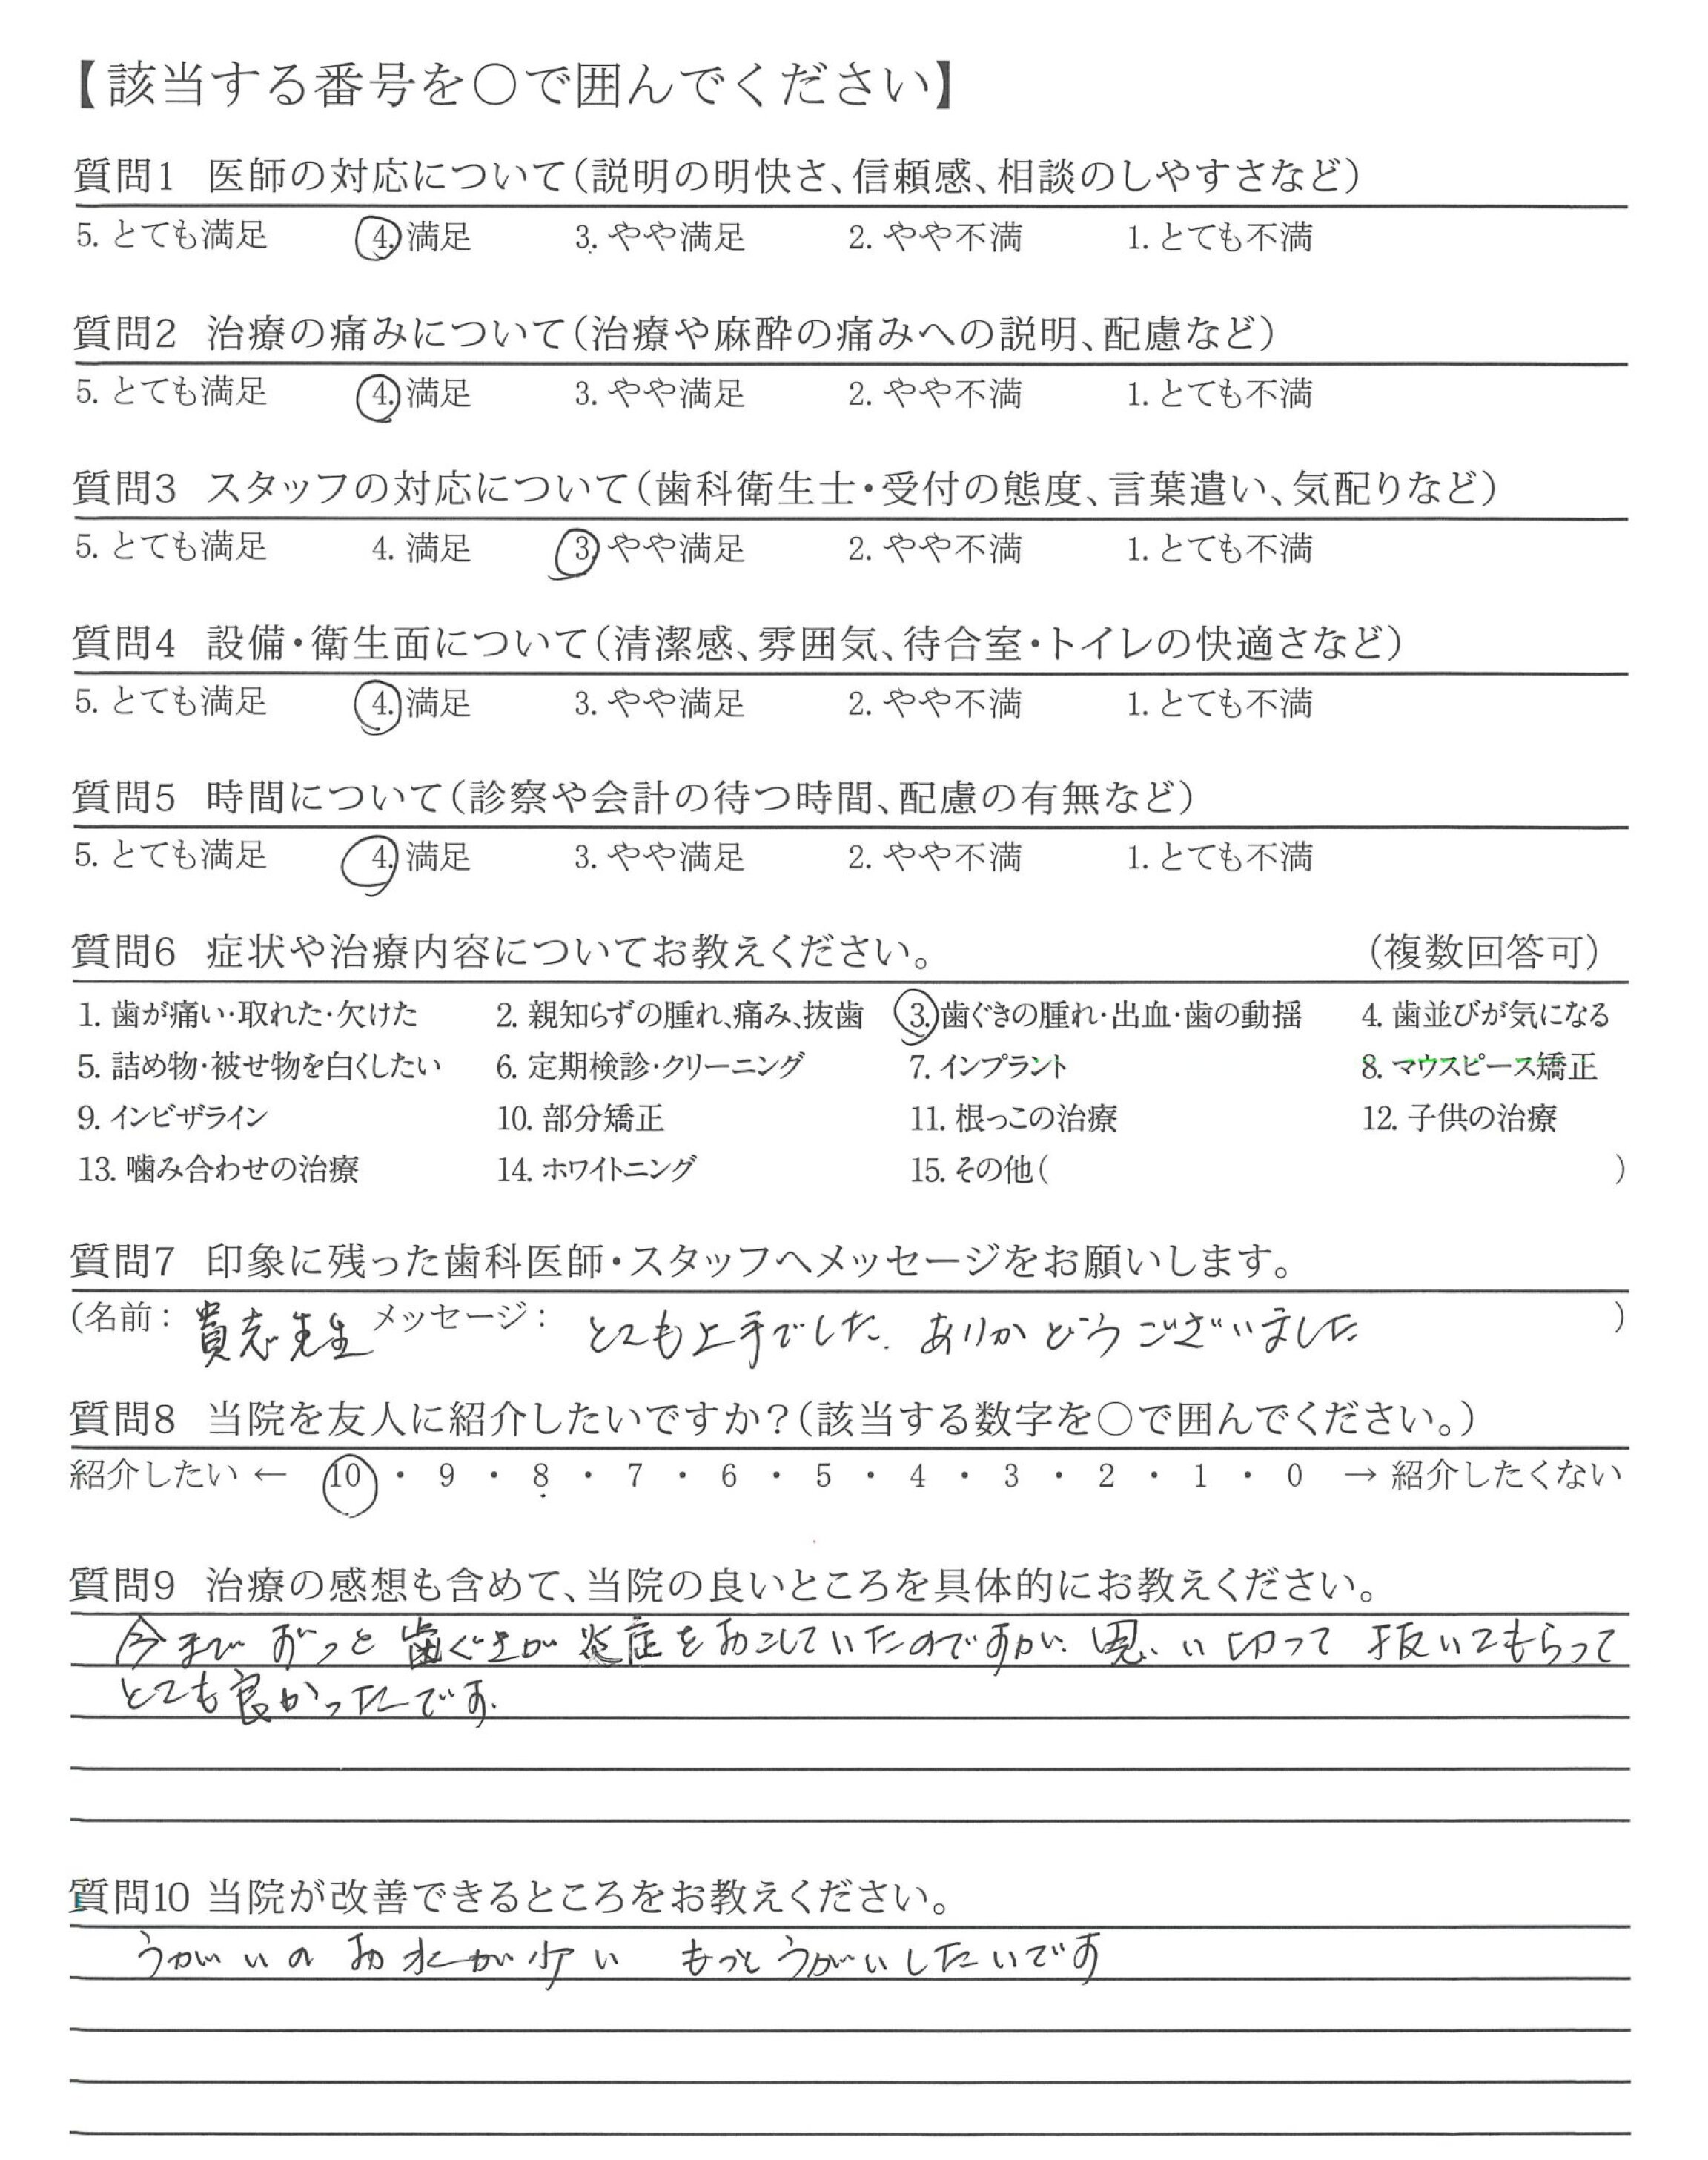 【該当する番号を○で囲んでください】
質問1 医師の対応について(説明の明快さ、信頼感、相談のしやすさなど)
5. とても満足 4. 満足 3. やや満足 2. やや不満 1. とても不満
質問2 治療の痛みについて(治療や麻酔の痛みへの説明、配慮など)
5. とても満足 4. 満足 3. やや満足 2. やや不満 1. とても不満
質問3 スタッフの対応について(歯科衛生士・受付の態度、言葉遣い、気配りなど)
5. とても満足 4. 満足 3. やや満足 2. やや不満 1. とても不満
質問4 設備・衛生面について(清潔感、雰囲気、待合室・トイレの快適さなど)
5. とても満足 4. 満足 3. やや満足 2. やや不満 1. とても不満
質問5 時間について(診察や会計の待つ時間、配慮の有無など)
5. とても満足 4. 満足 3. やや満足 2. やや不満 1. とても不満
質問6 症状や治療内容についてお教えください。 (複数回答可)
1. 歯が痛い・取れた・欠けた 2. 親知らずの腫れ、痛み、抜歯 3. 歯ぐきの腫れ・出血・歯の動揺 4. 歯並びが気になる
5. 詰め物・被せ物を白くしたい 6. 定期検診・クリーニング 7. インプラント 8. マウスピース矯正
9. インビザライン 10. 部分矯正 11. 根っこの治療 12. 子供の治療
13. 噛み合わせの治療 14. ホワイトニング 15. その他( )
質問7 印象に残った歯科医師・スタッフへメッセージをお願いします。
(名前: 貴志先生 メッセージ: とても上手でした. ありがとうございました )
質問8 当院を友人に紹介したいですか?(該当する数字を○で囲んでください。)
紹介したい ← 10 ・ 9 ・ 8 ・ 7 ・ 6 ・ 5 ・ 4 ・ 3 ・ 2 ・ 1 ・ 0 → 紹介したくない
質問9 治療の感想も含めて、当院の良いところを具体的にお教えください。
今まで ずっと 歯ぐきが 炎症を おこしていたのですが、思い切って 抜いてもらって
とても良かったです.
質問10 当院が改善できるところをお教えください。
うがいの お水が少い もっと うがいしたいです